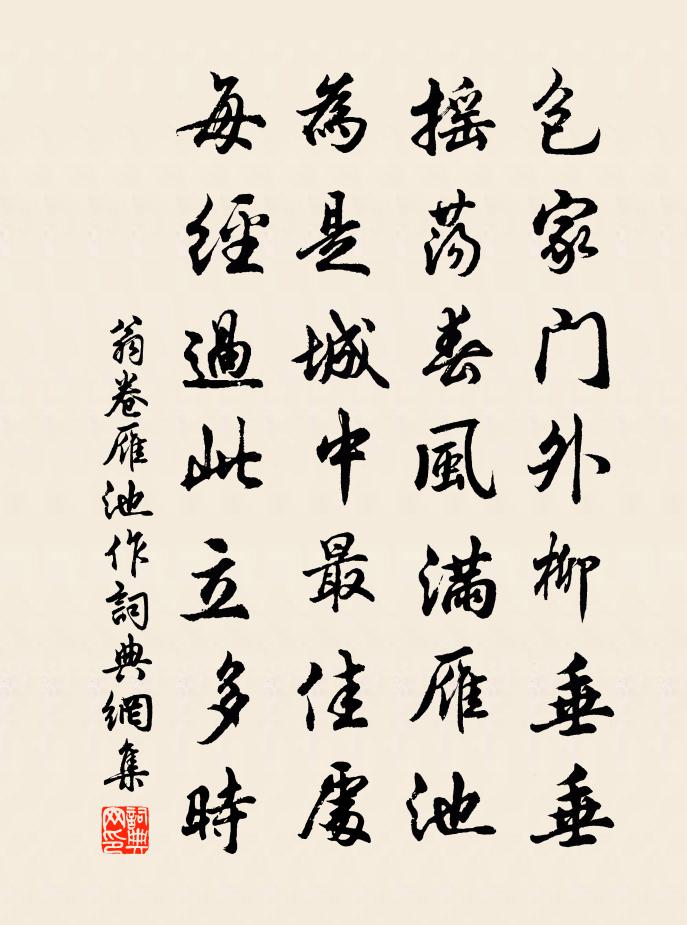 包家门外柳垂垂
摇荡春風滿雁池
為是城中最佳處
每經過此立多時
翁卷雁池作詞典網集
詞典網印